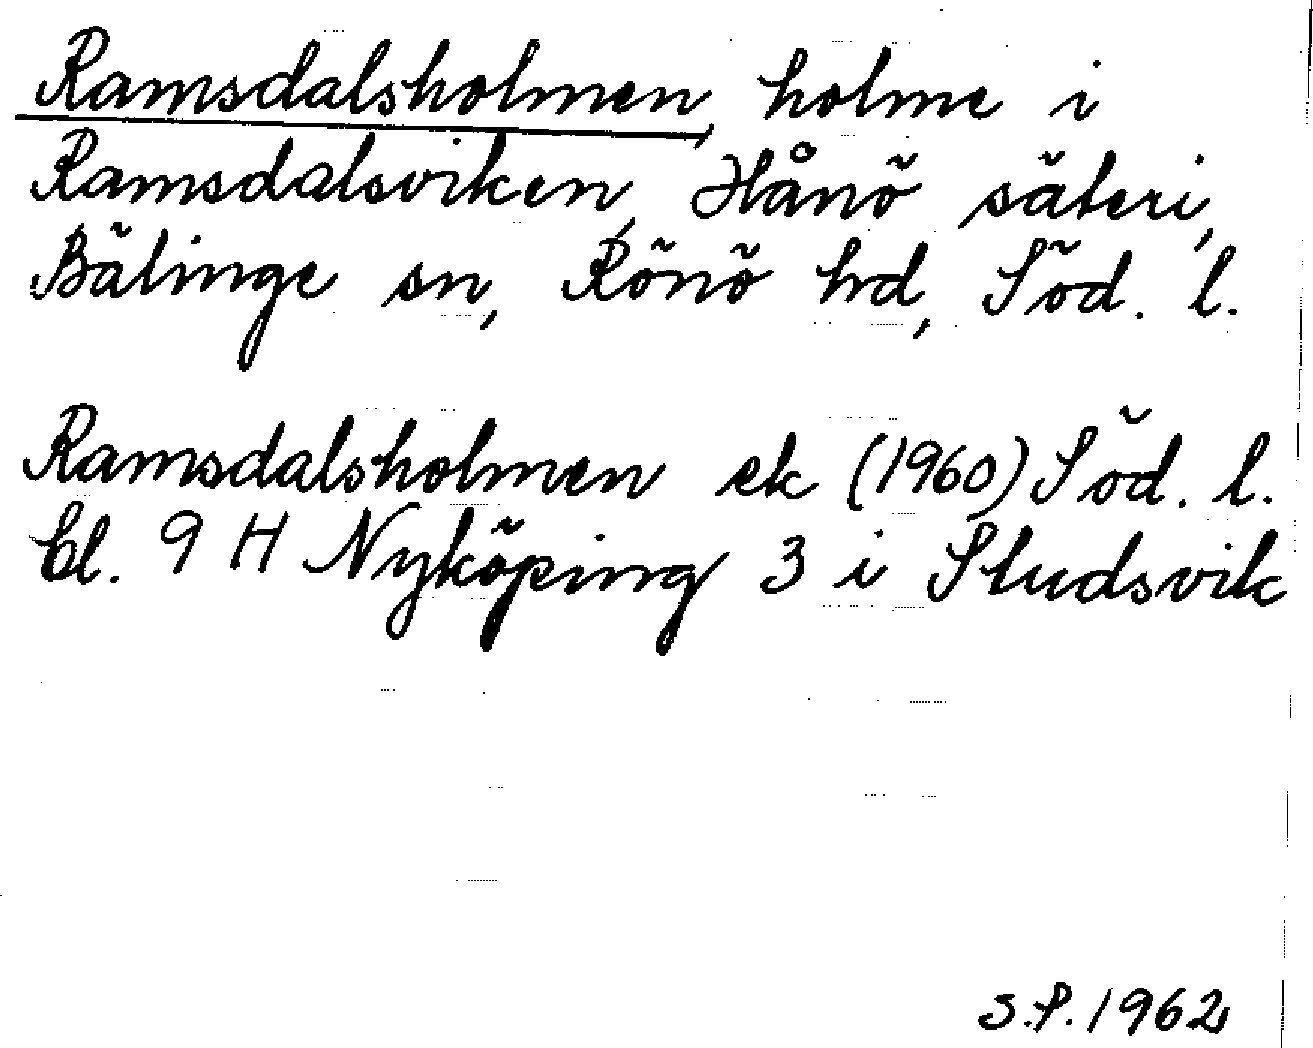 Ramsdalsholmen, holme i
Ramsdalsviken, Hånö säteri,
Bälinge sn, Rönö hd, Söd. l.
Ramsdalsholmen ek (1960) Söd. l.
bl. 9 H Nyköping 3 i Studsvik
S.P. 1962